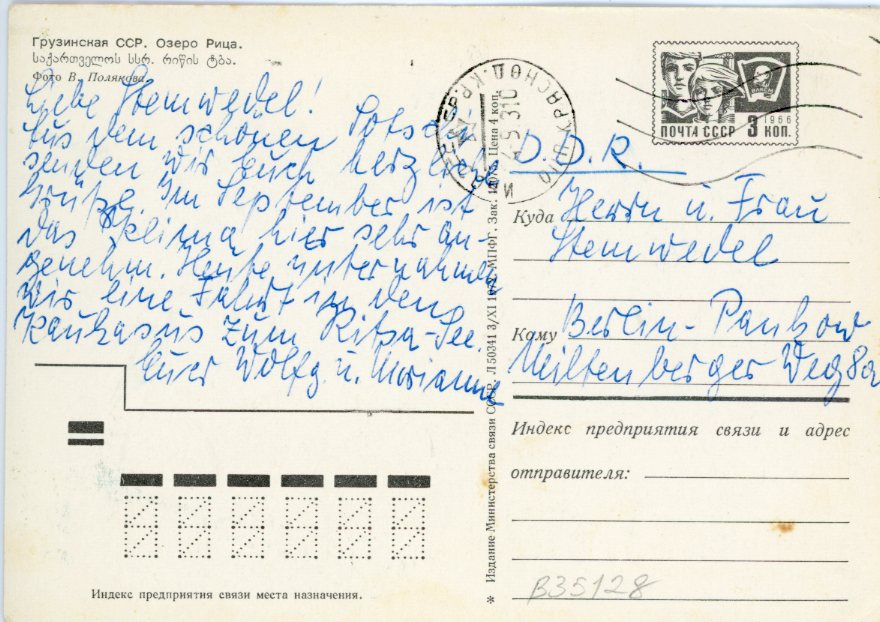 Грузинская ССР. Озеро Рица.
საქართველოს სსრ. რიწის ტბა.
Фото В. Полякова.
Liebe Stemwedel!
Aus dem schönen Sotschi
senden wir Euch herzliche
Grüße. Im September ist
das Klima hier sehr an-
genehm. Heute unternahmen
wir eine Fahrt in den
Kaukasus zum Ritza-See.
Euer Wolfg. u. Marianne
Индекс предприятия связи места назначения.
* Издание Министерства связи СССР. Л 50341 3/XI МПФГ. Зак. Цена 4 коп.
КРАСНОД. КР.
ПОЧТА СССР 3 КОП.
1966
ВЛКСМ
D.D.R.
Куда Herrn u. Frau
Stemwedel
Кому Berlin-Pankow
Miltenberger Weg 8a
Индекс предприятия связи и адрес
отправителя:
B35128